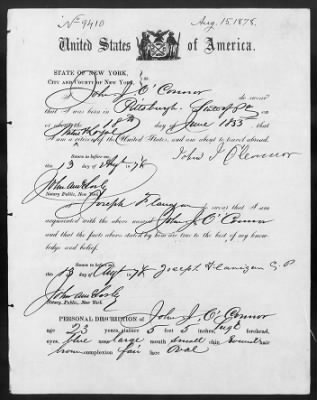 No 9410
Aug. 15. 1878.
United States of America.
STATE OF NEW YORK,
CITY AND COUNTY OF NEW YORK, ss.
I John J. O'Connor do swear
that I was born in Pittsburgh
on or about the 18th day of June 1855 that
I am a citizen of the United States, and am about to travel abroad.
Sworn to before me,
this 13 day of Augt 1878
John J O'Connor
Notary Public, New York
I Joseph Flanigan swear that I am
acquainted with the above named John J. O'Connor
and that the facts above stated by him are true to the best of my know-
ledge and belief.
Sworn to before me
this 13 day of Augt 1878
Joseph Flanigan
Notary Public, New York
PERSONAL DESCRIPTION of John J. O'Connor
age 23 years, stature 5 feet 5 inches, high forehead,
eyes, blue nose large mouth small chin round hair
brown complexion fair face oval